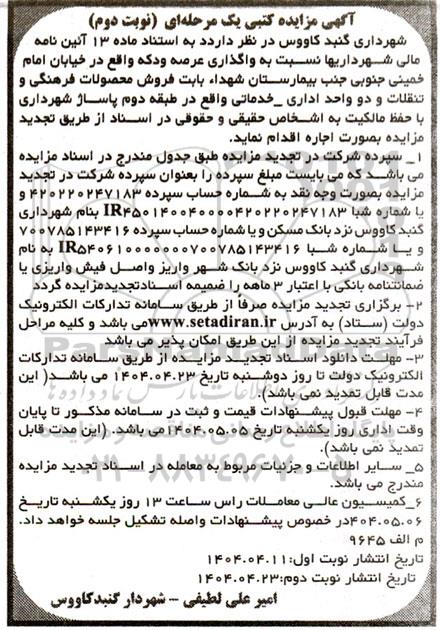 آگهی مزایده کتبی یک مرحله‌ای (نوبت دوم)
شهرداری گنبد کاووس در نظر داردد به استناد ماده ۱۳ آئین نامه
مالی شهرداریها نسبت به واگذاری عرصه ودکه واقع در خیابان امام
خمینی جنوبی جنب بیمارستان شهداء بابت فروش محصولات فرهنگی و
تنقلات و دو واحد اداری _خدماتی واقع در طبقه دوم پاساژ شهرداری
با حفظ مالکیت به اشخاص حقیقی و حقوقی در اسناد از طریق تجدید
مزایده بصورت اجاره اقدام نماید.
۱_ سپرده شرکت در تجدید مزایده طبق جدول مندرج در اسناد مزایده
می باشد که می بایست مبلغ سپرده را بعنوان سپرده شرکت در تجدید
مزایده بصورت وجه نقد به شماره حساب سپرده ۴۲۰۲۲۰۲۴۷۱۸۳ و
یا شماره شبا IR۴۵۰۱۴۰۰۴۰۰۰۰۴۲۰۲۲۰۲۴۷۱۸۳ بنام شهرداری
گنبد کاووس نزد بانک مسکن و یا شماره حساب سپرده ۷۰۰۷۸۵۱۴۳۴۱۶
و یا شماره شبا IR۵۴۰۶۱۰۰۰۰۰۰۰۷۰۰۷۸۵۱۴۳۴۱۶ به نام
شهرداری گنبد کاووس نزد بانک شهر واریز واصل فیش واریزی یا
ضمانتنامه بانکی با اعتبار ۳ ماهه را ضمیمه اسنادتجدیدمزایده گردد
۲- برگزاری تجدید مزایده صرفاً از طریق سامانه تدارکات الکترونیک
دولت (ستاد) به آدرس www.setadiran.ir می باشد و کلیه مراحل
فرآیند تجدید مزایده از این طریق امکان پذیر می باشد
۳- مهلت دانلود اسناد تجدید مزایده از طریق سامانه تدارکات
الکترونیک دولت تا روز دوشنبه تاریخ ۱۴۰۴.۰۴.۲۳ می باشد( این
مدت قابل تمدید نمی باشد).
۴- مهلت قبول پیشنهادات قیمت و ثبت در سامانه مذکور تا پایان
وقت اداری روز یکشنبه تاریخ ۱۴۰۴.۰۵.۰۵می باشد. (این مدت قابل
تمدید نمی باشد).
۵_ سایر اطلاعات و جزئیات مربوط به معامله در اسناد تجدید مزایده
مندرج می باشد.
۶_کمیسیون عالی معاملات راس ساعت ۱۳ روز یکشنبه تاریخ
۴۰۴.۰۵.۰۶در خصوص پیشنهادات واصله تشکیل جلسه خواهد داد.
م الف ۹۶۴۵
تاریخ انتشار نوبت اول:۱۴۰۴.۰۴.۱۱
تاریخ انتشار نوبت دوم:۱۴۰۴.۰۴.۲۳
امیر علی لطیفی - شهردار گنبدکاووس